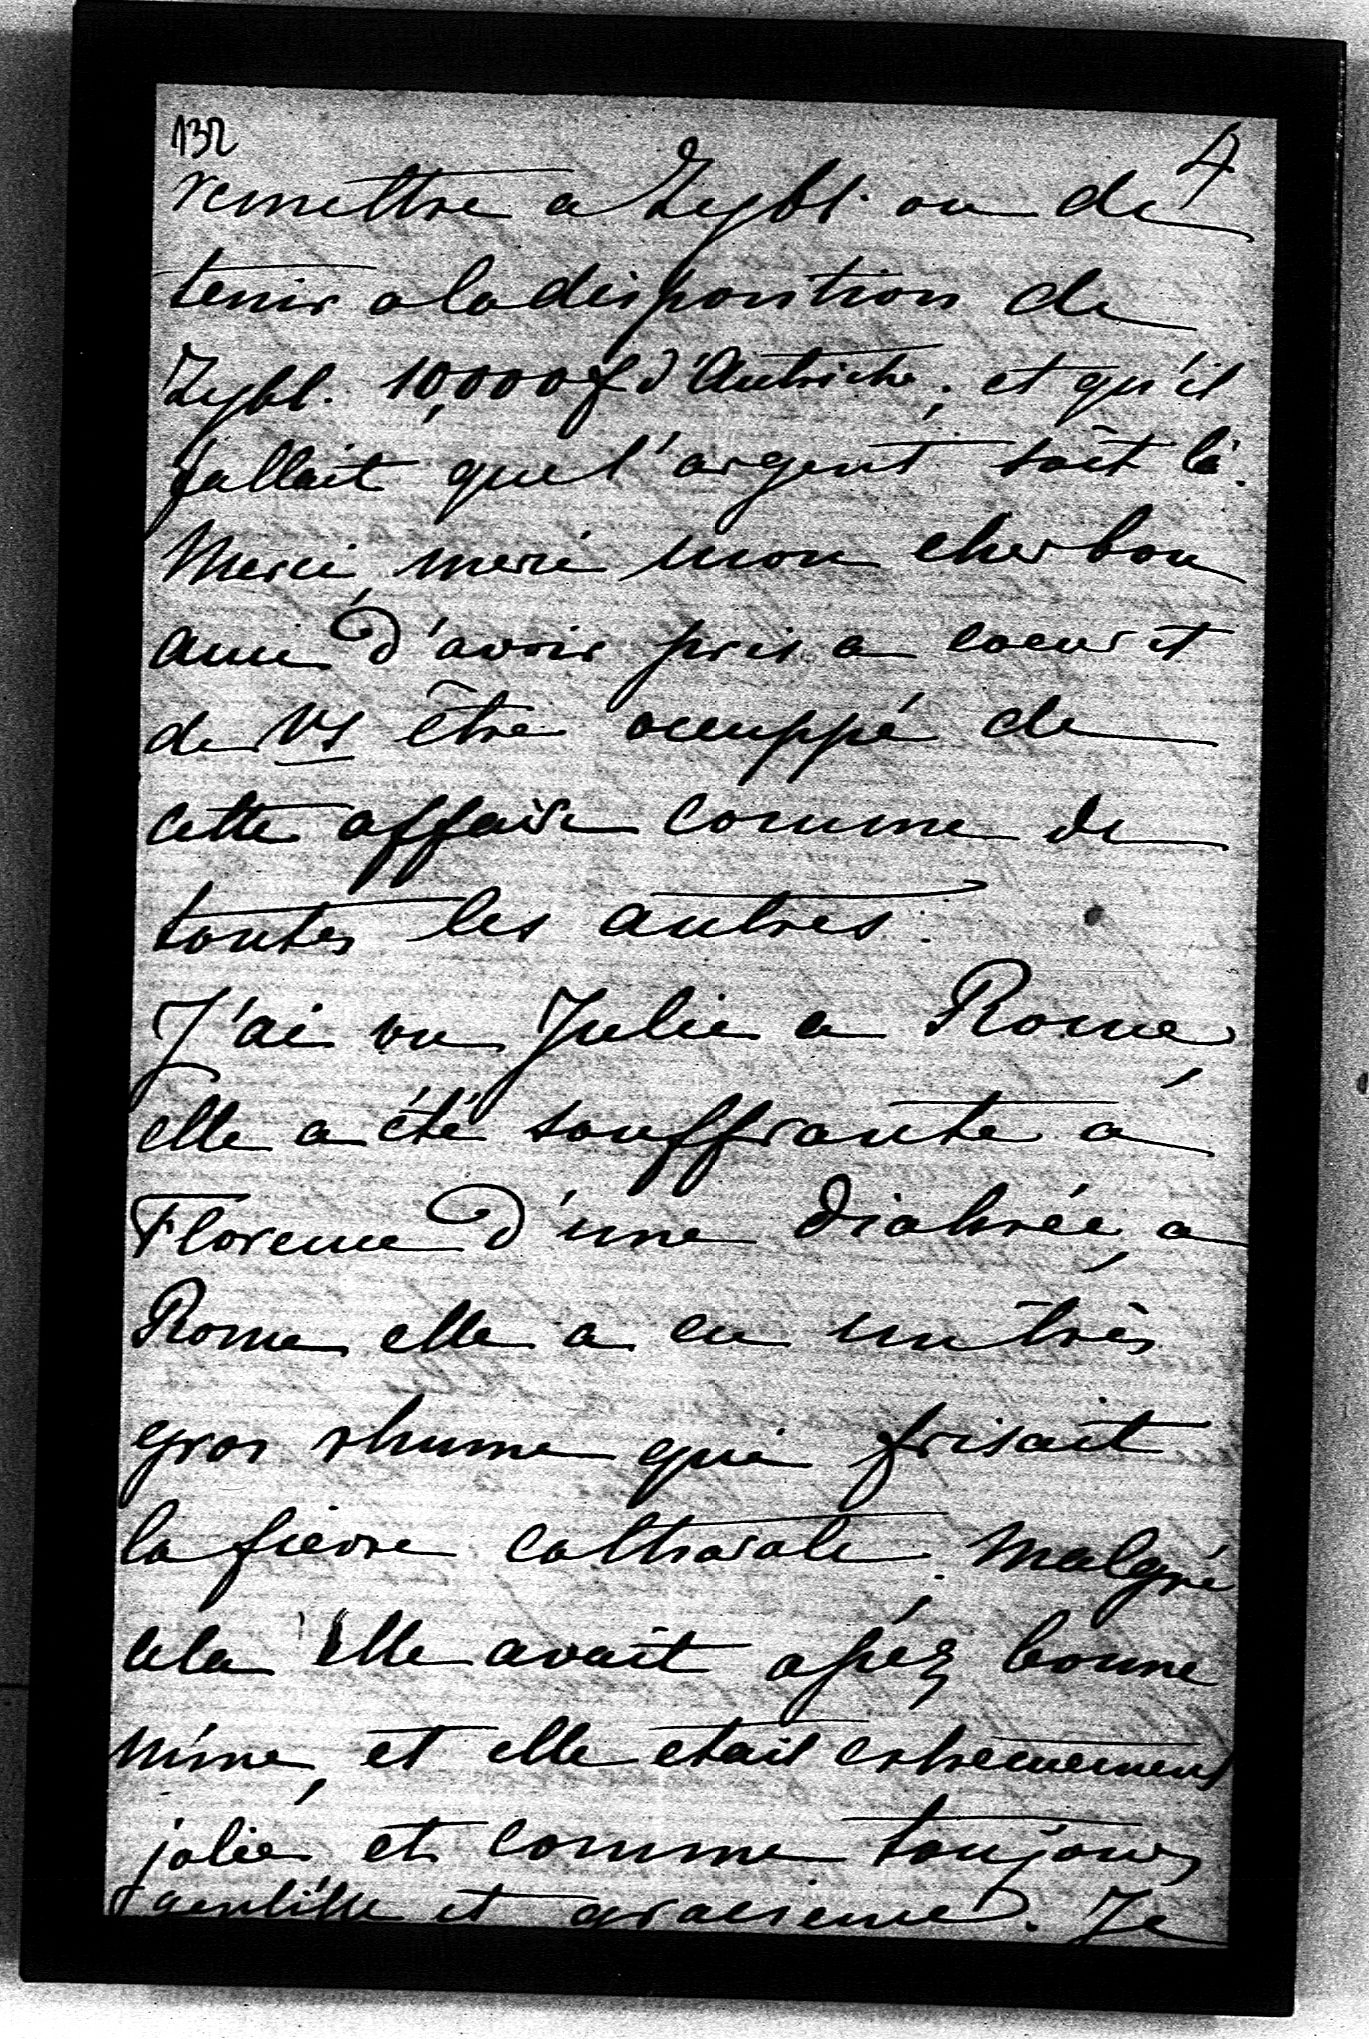 132
4
remettre a Zybl. ou de
tenir a la disposition de
Zybl. 10,000 f d'Autriche; et qu'il
fallait que l'argent soit là.
Merci, merci mon cher bon
ami d'avoir pris a coeur et
de vs être occuppé de
cette affaire comme de
toutes les autres.
J'ai vu Julie a Rome,
elle a été souffrante a
Florence d'une diahrée, a
Rome elle a eu un très
gros rhume qui frisait
la fievre cathrarale; Malgré
cela elle avait assez bonne
mine, et elle etait extremement
jolie et comme toujours
gentille et gracieuse. Je